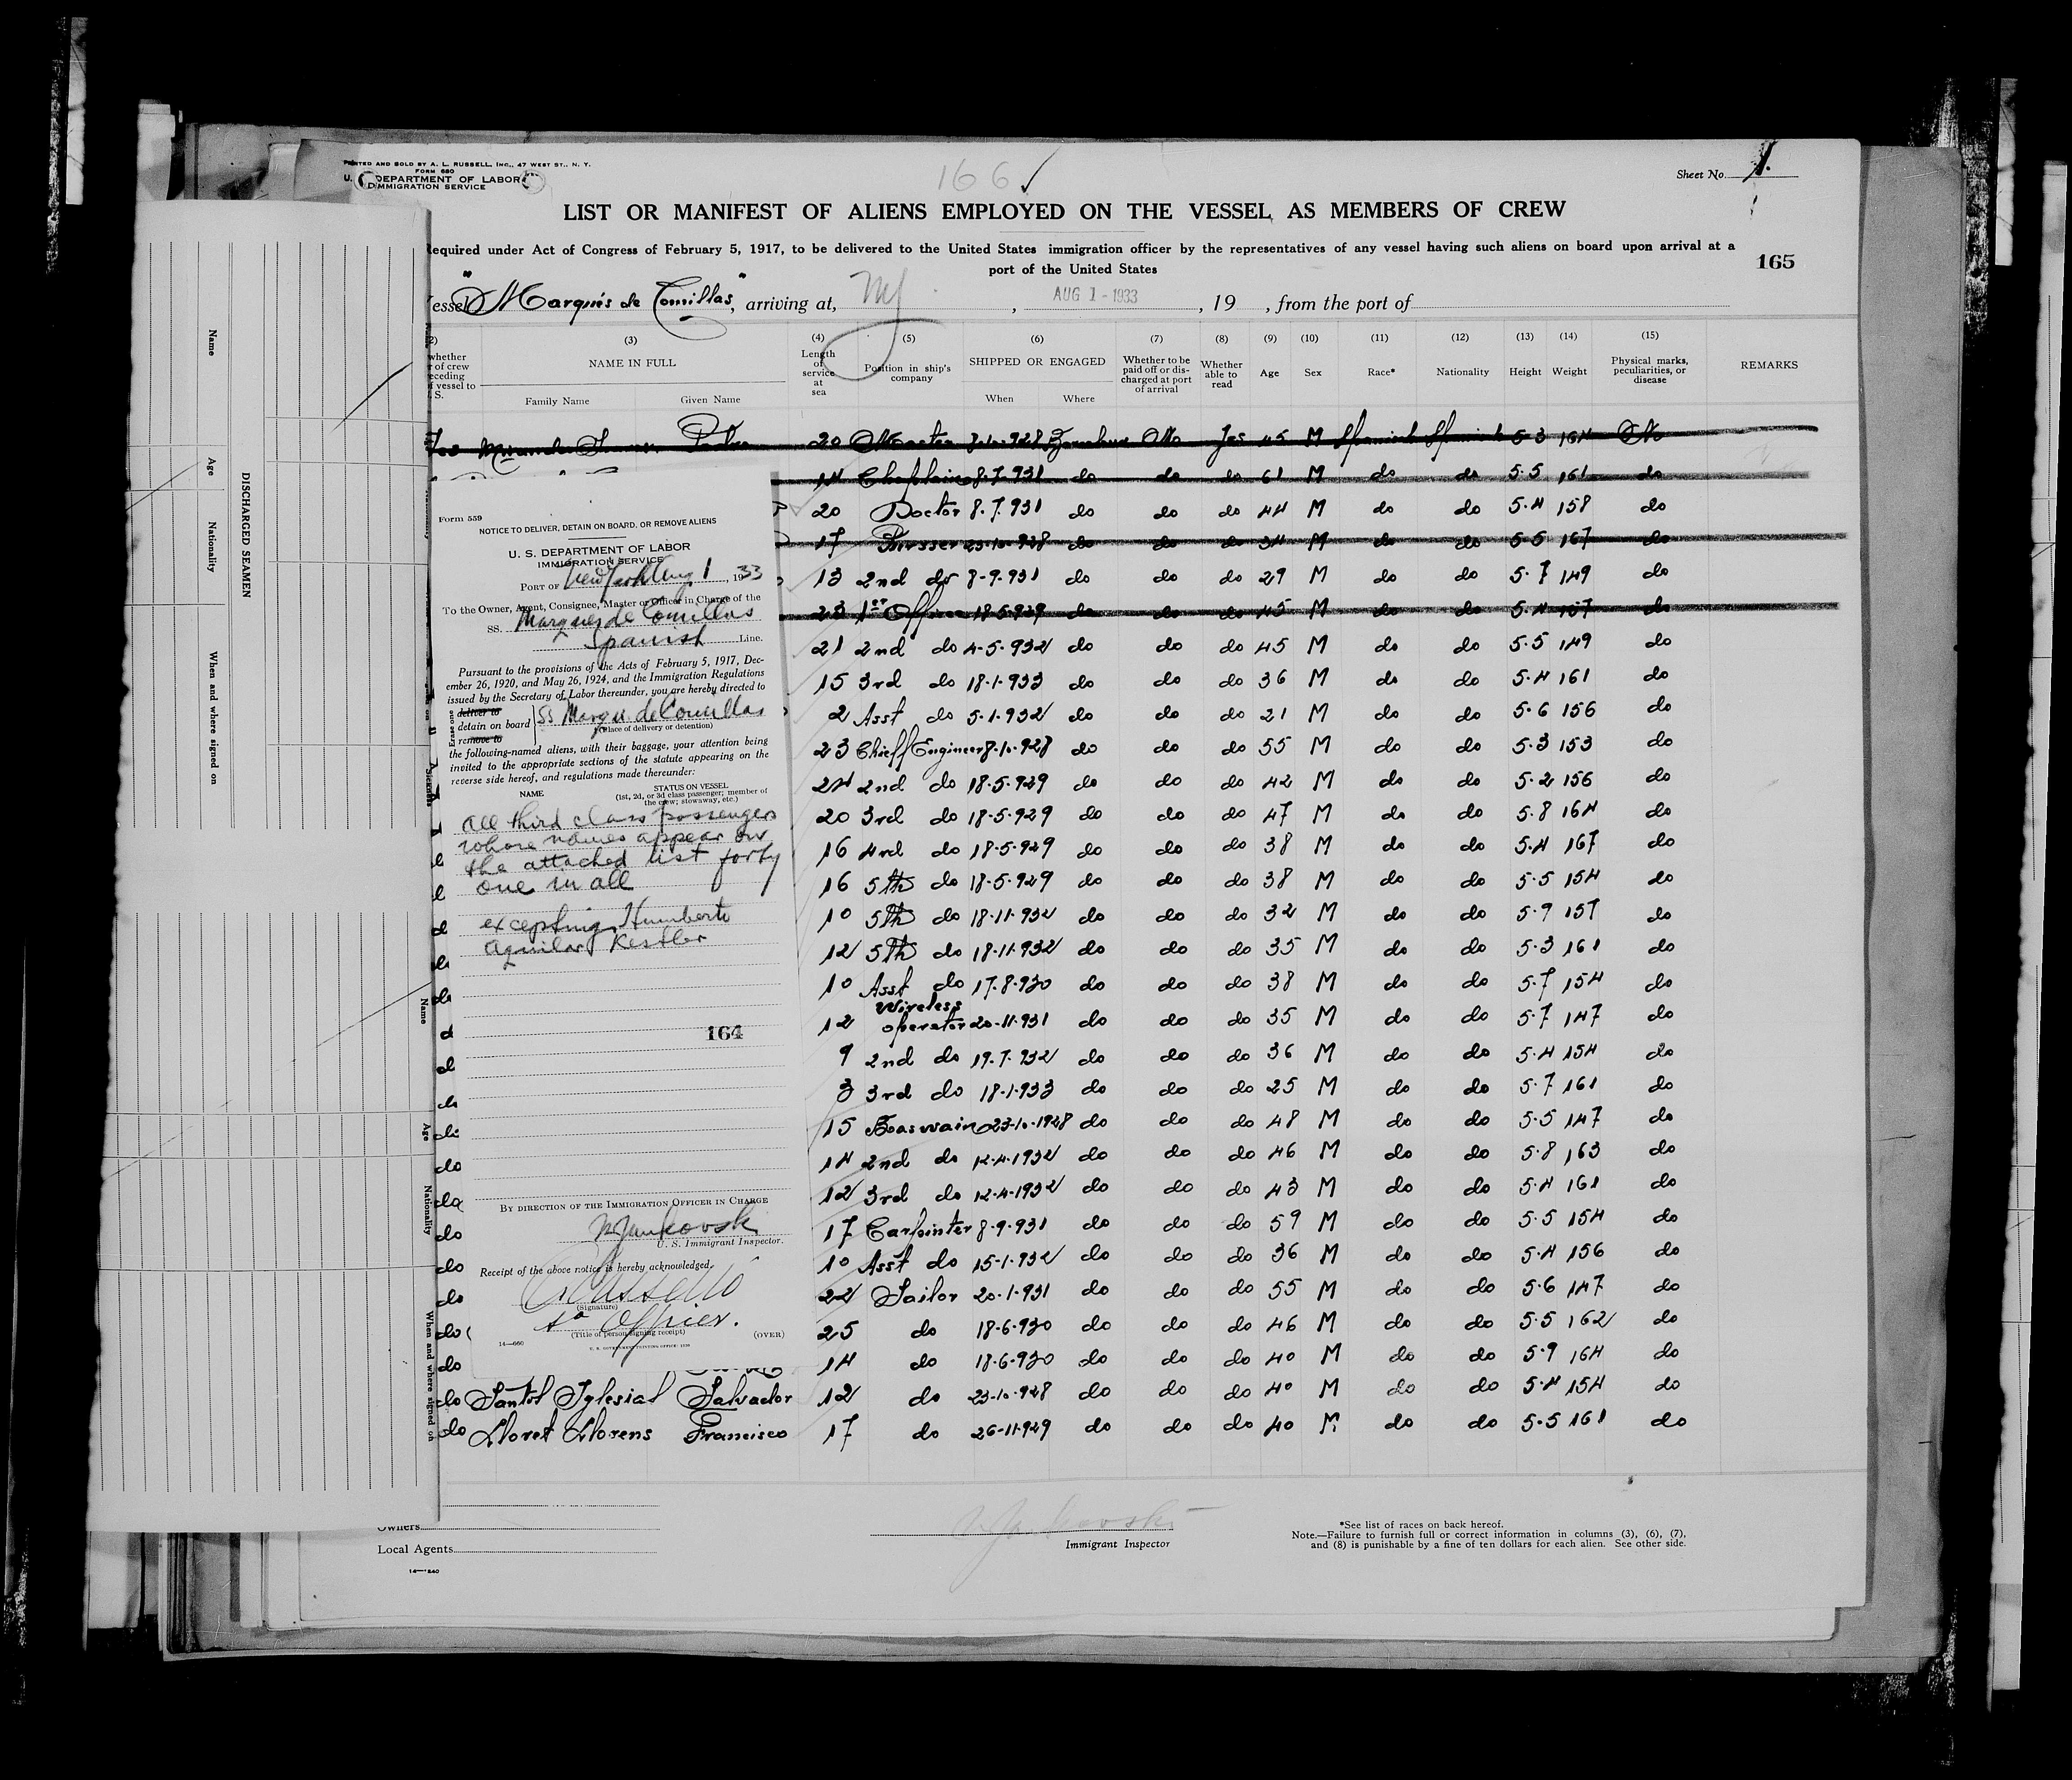 PRINTED AND SOLD BY A. L. RUSSELL, INC., 47 WEST ST., N. Y.
FORM 680
U. DEPARTMENT OF LABOR
IMMIGRATION SERVICE
166
Sheet No. 1.
LIST OR MANIFEST OF ALIENS EMPLOYED ON THE VESSEL AS MEMBERS OF CREW
Required under Act of Congress of February 5, 1917, to be delivered to the United States immigration officer by the representatives of any vessel having such aliens on board upon arrival at a
port of the United States
165
essel "Marqués de Comillas", arriving at, NY, AUG 1 - 1933, 19 , from the port of
(2) (3) (4) (5) (6) (7) (8) (9) (10) (11) (12) (13) (14) (15)
whether
r of crew
eceding
f vessel to
S.
NAME IN FULL
Family Name Given Name
Length of service at sea
Position in ship's company
SHIPPED OR ENGAGED
When Where
Whether to be paid off or discharged at port of arrival
Whether able to read
Age
Sex
Race*
Nationality
Height
Weight
Physical marks, peculiarities, or disease
REMARKS
Pedro 20 Master No Yes 45 M Spanish Spanish 5-3 164 No
14 Chaplain 8-7-931 do do do 61 M do do 5-5 161 do
20 Doctor 8-7-931 do do do 44 M do do 5-4 158 do
17 Pursser 23-10-928 do do do 34 M do do 5-5 167 do
13 2nd do 8-9-931 do do do 29 M do do 5-7 149 do
23 1er Officer 18-5-929 do do do 45 M do do 5-4 157 do
21 2nd do 4-5-932 do do do 45 M do do 5-5 149 do
15 3rd do 18-1-933 do do do 36 M do do 5-4 161 do
2 Asst do 5-1-932 do do do 21 M do do 5-6 156 do
23 Chieff Engineer 8-10-928 do do do 55 M do do 5-3 153 do
24 2nd do 18-5-929 do do do 42 M do do 5-2 156 do
20 3rd do 18-5-929 do do do 47 M do do 5-8 164 do
16 4rd do 18-5-929 do do do 38 M do do 5-4 167 do
16 5th do 18-5-929 do do do 38 M do do 5-5 154 do
10 5th do 18-11-932 do do do 32 M do do 5-9 157 do
12 5th do 18-11-932 do do do 35 M do do 5-3 161 do
10 Asst do 17-8-930 do do do 38 M do do 5-7 154 do
12 Wireless operator 20-11-931 do do do 35 M do do 5-7 147 do
9 2nd do 19-7-932 do do do 36 M do do 5-4 154 do
3 3rd do 18-1-933 do do do 25 M do do 5-7 161 do
15 Boaswain 23-10-1928 do do do 48 M do do 5-5 147 do
14 2nd do 12-4-1932 do do do 46 M do do 5-8 163 do
12 3rd do 12-4-1932 do do do 43 M do do 5-4 161 do
17 Carpinter 8-9-931 do do do 59 M do do 5-5 154 do
10 Asst do 15-1-932 do do do 36 M do do 5-4 156 do
22 Sailor 20-1-931 do do do 55 M do do 5-6 147 do
25 do 18-6-930 do do do 46 M do do 5-5 162 do
14 do 18-6-930 do do do 40 M do do 5-9 164 do
do Iglesial Salvador 12 do 23-10-928 do do do 40 M do do 5-4 154 do
do Lloret Llorens Francisco 17 do 26-11-929 do do do 40 M do do 5-5 161 do
Owners
Local Agents
14—1240
Immigrant Inspector
*See list of races on back hereof.
Note.—Failure to furnish full or correct information in columns (3), (6), (7),
and (8) is punishable by a fine of ten dollars for each alien. See other side.
Form 559
NOTICE TO DELIVER, DETAIN ON BOARD, OR REMOVE ALIENS
U. S. DEPARTMENT OF LABOR
IMMIGRATION SERVICE
PORT OF New York Aug 1, 1933
To the Owner, Agent, Consignee, Master or Officer in Charge of the
SS. Marques de Comillas
Spanish Line.
Pursuant to the provisions of the Acts of February 5, 1917, Dec-
ember 26, 1920, and May 26, 1924, and the Immigration Regulations
issued by the Secretary of Labor thereunder, you are hereby directed to
Erase one
deliver to
detain on board SS Marqu. de Comillas
(Place of delivery or detention)
remove to
the following-named aliens, with their baggage, your attention being
invited to the appropriate sections of the statute appearing on the
reverse side hereof, and regulations made thereunder:
NAME
STATUS ON VESSEL
(1st, 2d, or 3d class passenger; member of
the crew; stowaway, etc.)
all third class passengers
whose names appear on
the attached list forty
one in all
excepting Humberto
Aguilar Kestler
164
BY DIRECTION OF THE IMMIGRATION OFFICER IN CHARGE
U. S. Immigrant Inspector.
Receipt of the above notice is hereby acknowledged.
(Signature)
Officer.
(Title of person signing receipt)
(OVER)
14—660
U. S. GOVERNMENT PRINTING OFFICE
DISCHARGED SEAMEN
Name
Age
Nationality
When and where signed on
Name
Age
Nationality
When and where signed on